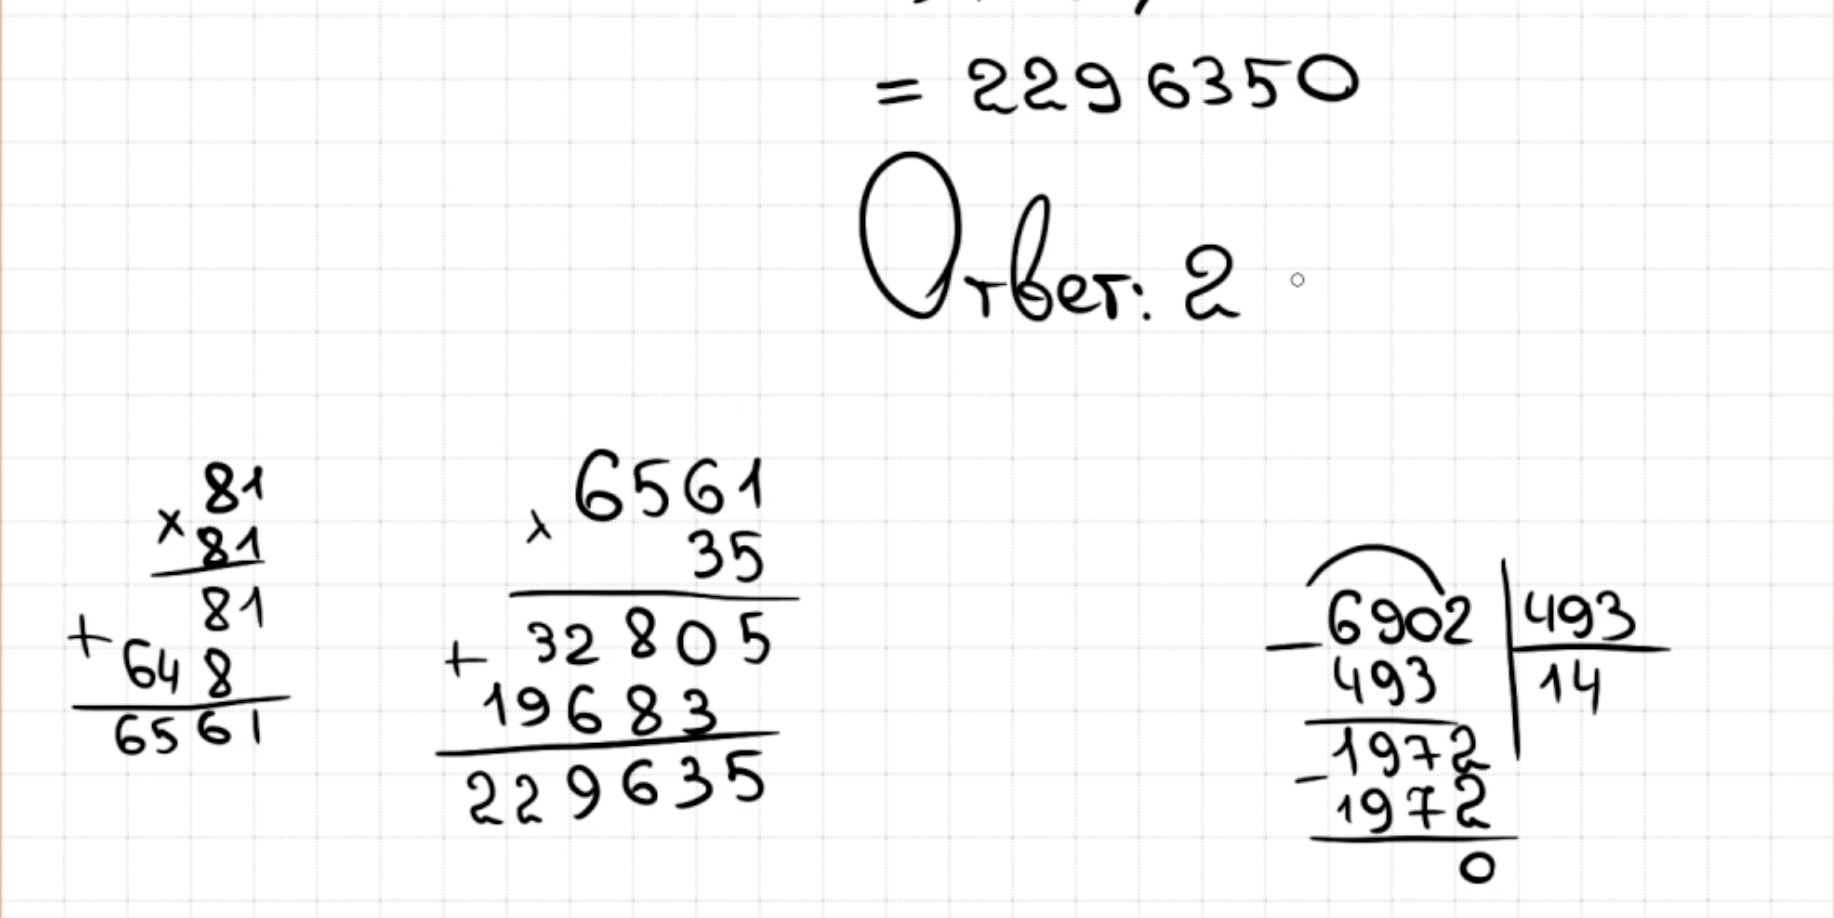 = 2296350
Ответ: 2
81
× 81
81
+ 648
6561
6561
× 35
32805
+ 19683
229635
6902 | 493
− 493 | 14
1972
− 1972
0